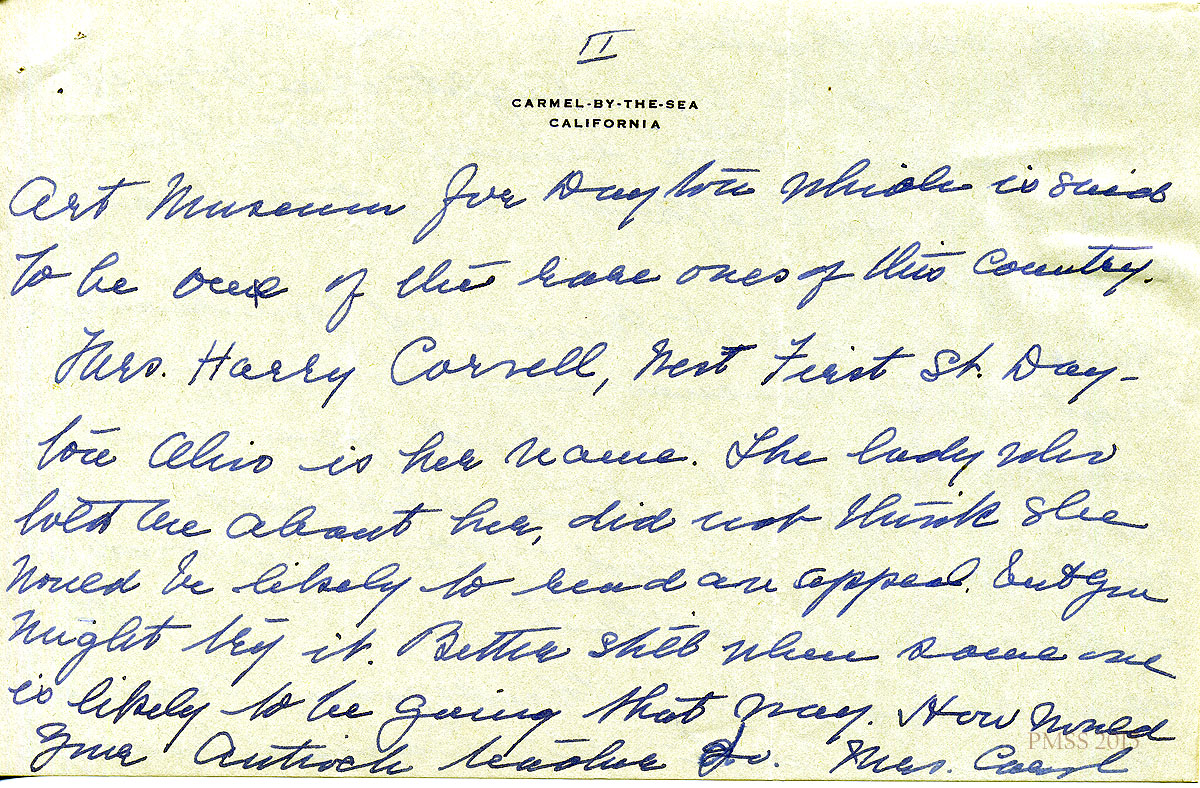 II
CARMEL-BY-THE-SEA
CALIFORNIA
Art Museum for Dayton which is said
to be one of the rare ones of this Country.
Mrs. Harry Correll, West First St. Day-
ton Ohio is her name. The lady who
told me about her, did not think she
would be likely to read an appeal. But you
might try it. Better still when some one
is likely to be going that way. How would
your Antioch teacher do. Mrs.
PMSS 2015